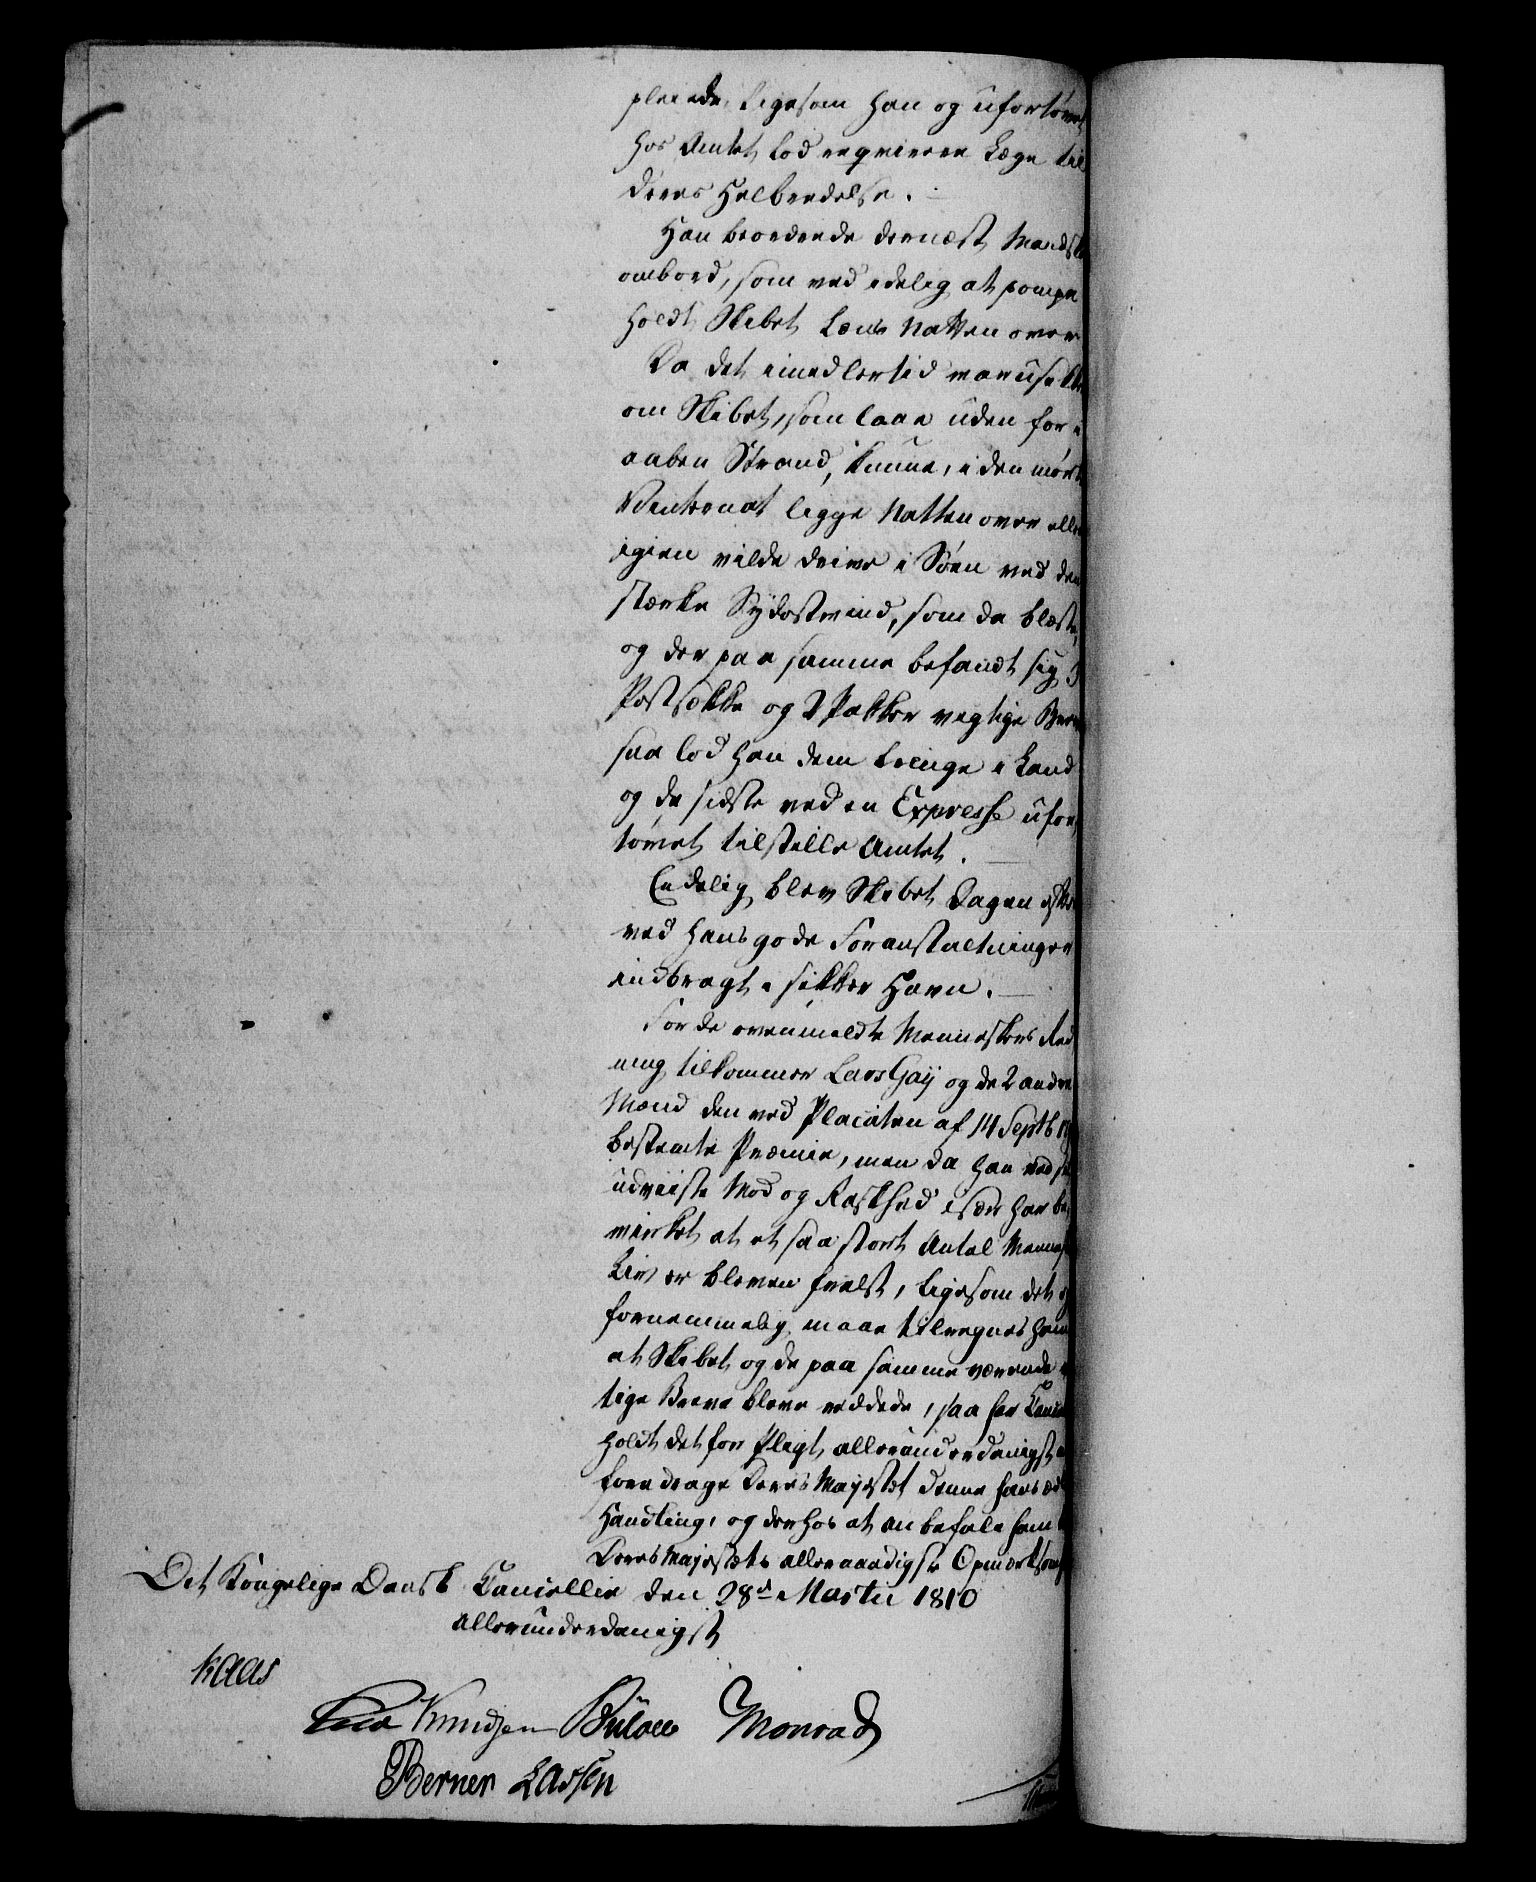 pleiede, ligesom han og ufortøvet
hos Amtet lod reqvirere Læge til
deres Helbredelse.
Han beordrede dernæst Mandsk
ombord, som ved idelig at pompe
holdt Skibet Læns Natten over
Da det imidlertid var usikke
om Skibet, som laae uden for i
aaben Strand, kunne, i den mørk
Vinternat ligge Natten over eller
igien vilde drive i Søen ved den
stærke Sydostvind, som da blæste,
og der paa samme befandt sig 3
Postsække og 2 Pakker vigtige Breve
saa lod han dem bringe i Land
og de sidste ved en Expresse ufor,
tøvet tilstille Amtet.
Endelig blev Skibet Dagen efter
ved hans gode Foranstaltninger
indbragt i sikker Havn.
For de ovenmeldte Menneskers Red
ning tilkommer Lars Gaÿ og de 2 andre
Mænd den ved Placaten af 14 Septb
bestemte Præmie, men da han ved sit
udviiste Mod og Raskhed især har be,
virket at et saa stort Antal Mennesk
Liv er bleven frelst, ligesom det og
fornemmelig maae tilregnes ham
at Skibet og de paa samme værende v
tige Breve bleve reddede, saa har Cancel
holdt det for Pligt allerunderdanigst at
foredrage Deres Majestæt denne hans æd
Handling, og derhos at anbefale ham
Deres Majestæts allernaadigste Opmærksom
Det Kongelige Danske Cancellie den 28d Martii 1810
allerunderdanigst
Kaas
Knudsen Bülow Monrad
Berner Lassen